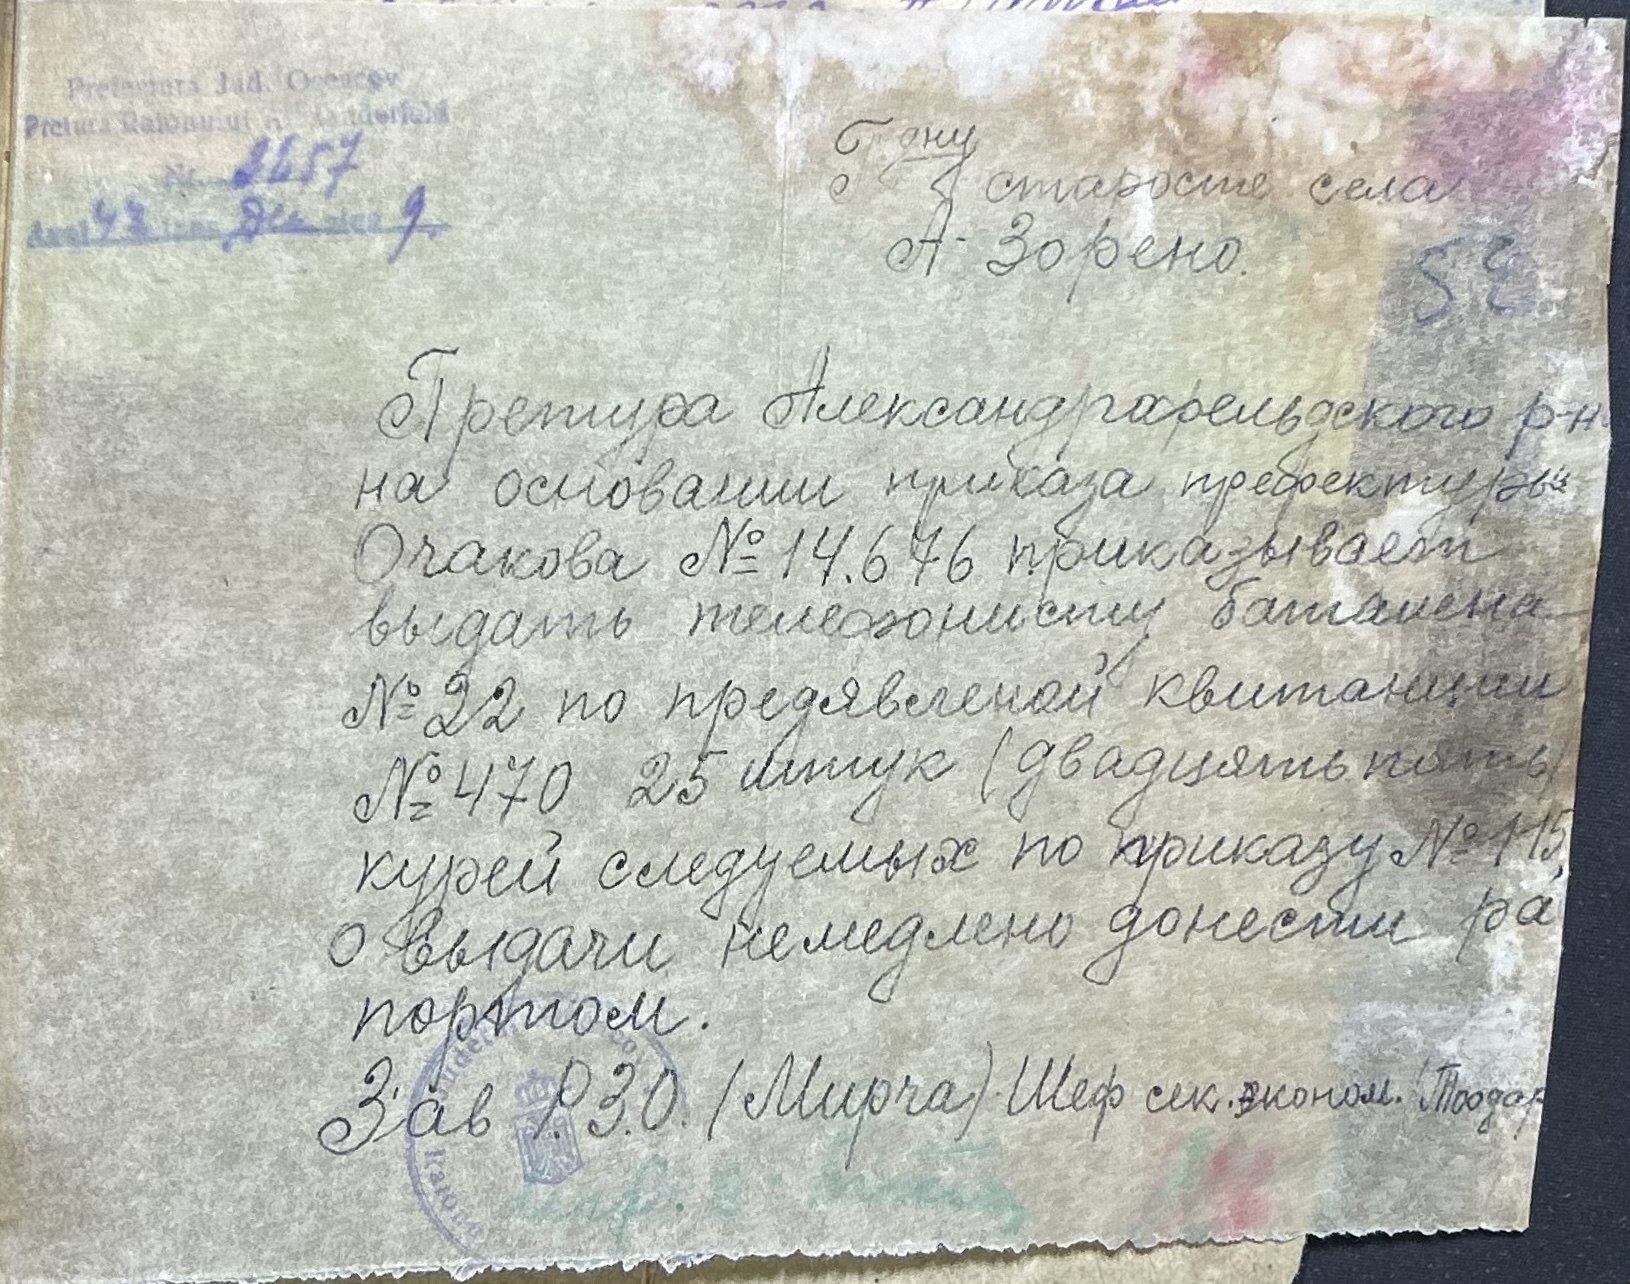 Prefectura Jud. Oceacov
Pretura Raionului
Nr. 2657
Anul 43 luna Dec ziua 9.
Г дну
старосте села
А-Зорено.
52
Претура Александрафельдского р-н
на основании приказа префектуры
Очакова № 14.676 приказывает
выдать телефонисту баталена
№ 22 по предявленой квитанции
№ 470 25 штук (двадцять пять)
курей следуемых по приказу № 115,
о выдачи немедлено донести ра
портом.
Зав Р.З.О. (Мирча) Шеф сек. эконом. (Тоодор